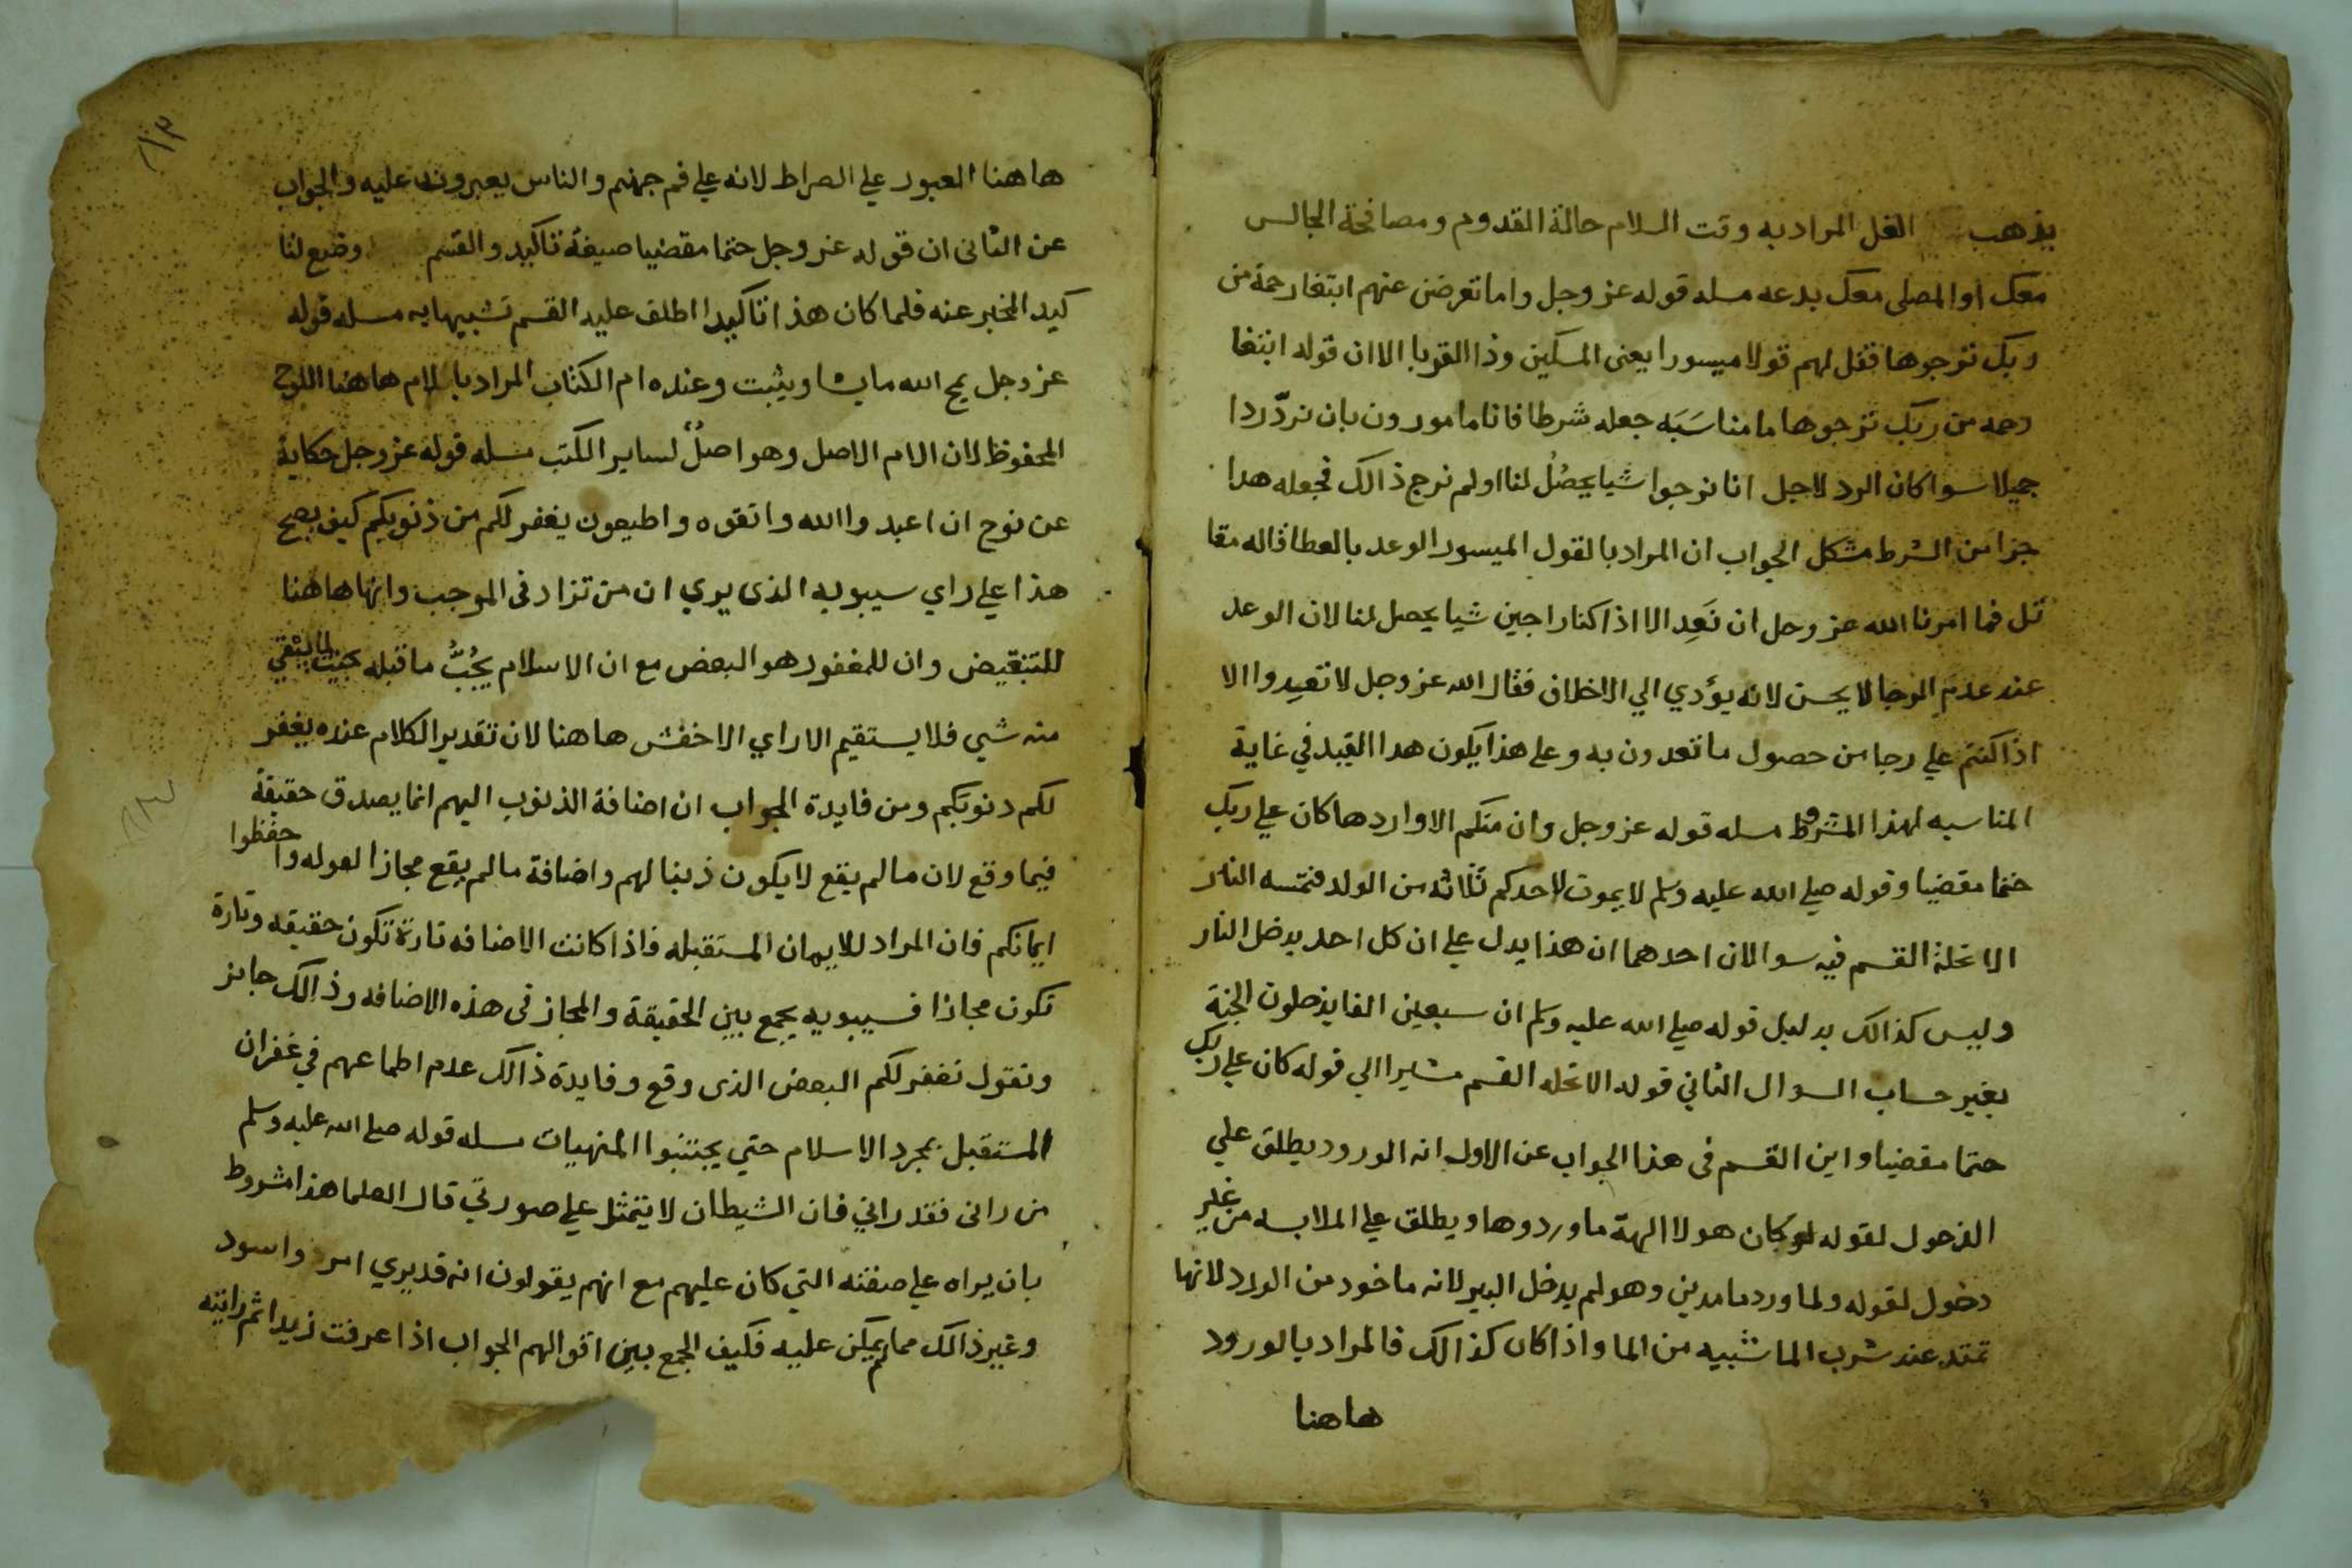 يذهب الغل المراد به وقت السلام حالة القدوم ومصافحة الجالس
معك او المصلى معك بدعه مسله قوله عز وجل واما تعرضن عنهم ابتغا رحمة من
ربك ترجوها فقل لهم قولا ميسورا يعنى المسكين وذا القربا الا ان قوله ابتغا
رحمه من ربك ترجوها ما مناسَبَه جعله شرطا فانا مامورون بان نردّ ردا
جميلا سوا كان الرد لاجل انا نرجوا شيا يحصُلُ لنا او لم نرج ذالك فجعله هدا
جزا من الشرط مشكل الجواب ان المراد بالقول الميسور الوعد بالعطا قاله مقا
تل فما امرنا الله عز وجل ان نَعِد الا اذا كنا راجين شيا يحصل لنا لان الوعد
عند عدم الرجا لا يحسن لانه يؤدي الي الاخلاف فقال الله عز وجل لا تعِدوا الا
اذا كنتم علي رجا من حصول ما تعدون به وعلى هذا يكون هدا القيد في غاية
المناسبه لهذا المشروط مسله قوله عز وجل وان منكم الا واردها كان علي ربك
حتما مقضيا وقوله صلي الله عليه وسلم لا يموت لاحدكم ثلاثه من الولد فتمسه النار
الا تحلة القسم فيه سوالان احدهما ان هذا يدل علي ان كل احد يدخل النار
وليس كذالك بدليل قوله صلي الله عليه وسلم ان سبعين الفا يدخلون الجنة
بغير حساب السوال الثاني قوله الا تحله القسم مشيرا الي قوله كان علي ربك
حتما مقضيا واين القسم فى هذا الجواب عن الاول انه الورود يطلق علي
الدخول لقوله لو كان هولا الهة ما وردوها ويطلق علي الملابسه من غير
دخول لقوله ولما ورد ما مدين وهو لم يدخل البير لانه ماخود من الورد لانها
تمتد عند شرب الما شبيه من الما واذا كان كذالك فالمراد بالورود
هاهنا
هاهنا العبور علي الصراط لانه علي فم جهنم والناس يعبرون عليه والجواب
عن الثانى ان قوله عز وجل حتما مقضيا صيغة تاكيد والقسم وضع لتا
كيد المخبر عنه فلما كان هذا تاكيدا اطلق عليه القسم تشبيها به مسله قوله
عز وجل يمح الله ما يشا ويثبت وعنده ام الكتاب المراد بالام هاهنا اللوح
المحفوظ لان الام الاصل وهو اصلٌ لساير الكتب مسله قوله عز وجل حكاية
عن نوح ان اعبدوا الله واتقوه واطيعون يغفر لكم من ذنوبكم كيف يصح
هذا علي راي سيبويه الذى يري ان من تزاد فى الموجب وانها هاهنا
للتبعيض وان للمغفور هو البعض مع ان الاسلام يجُبُّ ما قبله بحيث لا يبقي
منه شي فلا يستقيم الا راي الاخفش هاهنا لان تقدير الكلام عنده يغفر
لكم دنوبكم ومن فايدة الجواب ان اضافة الذنوب اليهم انما يصدق حقيقةً
فيما وقع لان ما لم يقع لا يكون ذنبا لهم واضافة ما لم يقع مجازا لقوله واحفظوا
ايمانكم فان المراد للايمان المستقبله فاذا كانت الاضافه تارة تكون حقيقه وتارة
تكون مجازا فسيبويه يجمع بين الحقيقة والمجاز فى هذه الاضافه وذالك جايز
ونقول نغفر لكم البعض الذى وقع وفايدة ذالك عدم اطماعهم في غفران
المستقبل بمجرد الاسلام حتي يجتنبوا المنهيات مسله قوله صلى الله عليه وسلم
من رانى فقد راني فان الشيطان لا يتمثل علي صورتي قال العلما هذا مشروط
بان يراه علي صفته التي كان عليهم مع انهم يقولون انه قد يري امرد واسود
وغير ذالك مما لم يكن عليه فكيف الجمع بين اقوالهم الجواب اذا عرفت زيدا ثم رايته